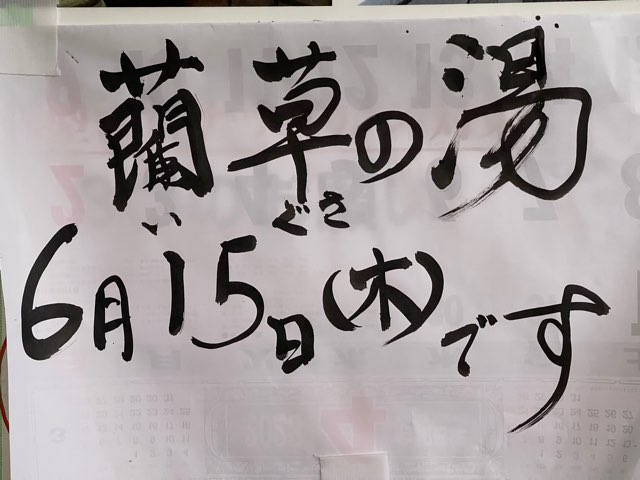 藺草の湯
いぐさ
6月15日(木)です